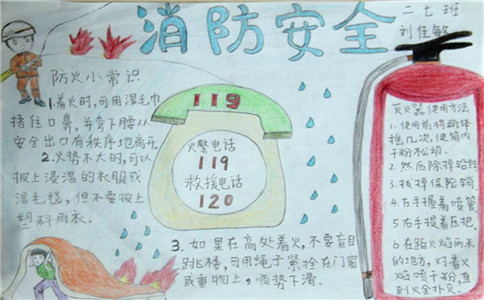 消防安全
二七班
刘佳敏
防火小常识
1.着火时,可用湿毛巾
捂住口鼻,并弯下腰从
安全出口有秩序地离开。
2.火势不大时,可以
披上浸湿的衣服或
湿毛毯,但不要披上
塑料雨衣。
119
火警电话
119
救援电话
120
3.如果在高处着火,不要盲目
跳楼,可用绳子紧拴在门窗
或重物上,顺势下滑。
灭火器使用方法
1.使用前将瓶体
摇几次,使筒内
干粉松动.
2.然后除掉铅封
3.拔掉保险销
4.右手握着喷管
5.右手提着压把.
6.在距火焰两米
的地方,对着火
焰喷干粉,直
到火全扑灭。